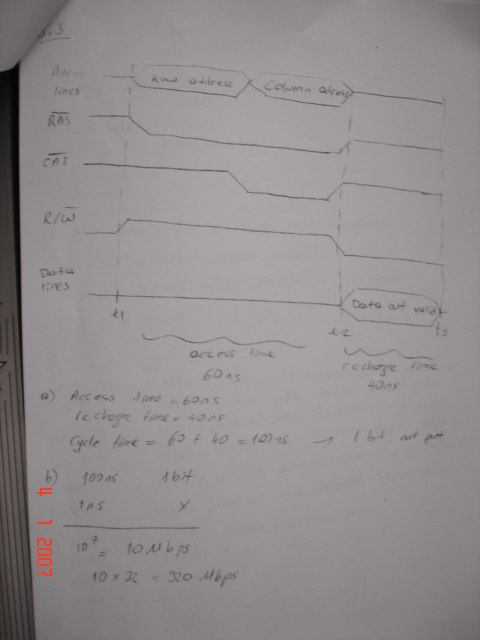 Row address Column adress
lines
RAS
CAS
R/W
Data
lines
Data out valid
t1 t2 t3
access time
60ns
recharge time
40ns
a) Access time = 60ns
recharge time = 40ns
Cycle time = 60 + 40 = 100ns → 1 bit out put
b) 100ns 1bit
1ns x
10^7 = 10 Mbps
10 x 32 = 320 Mbps
4 1 2007